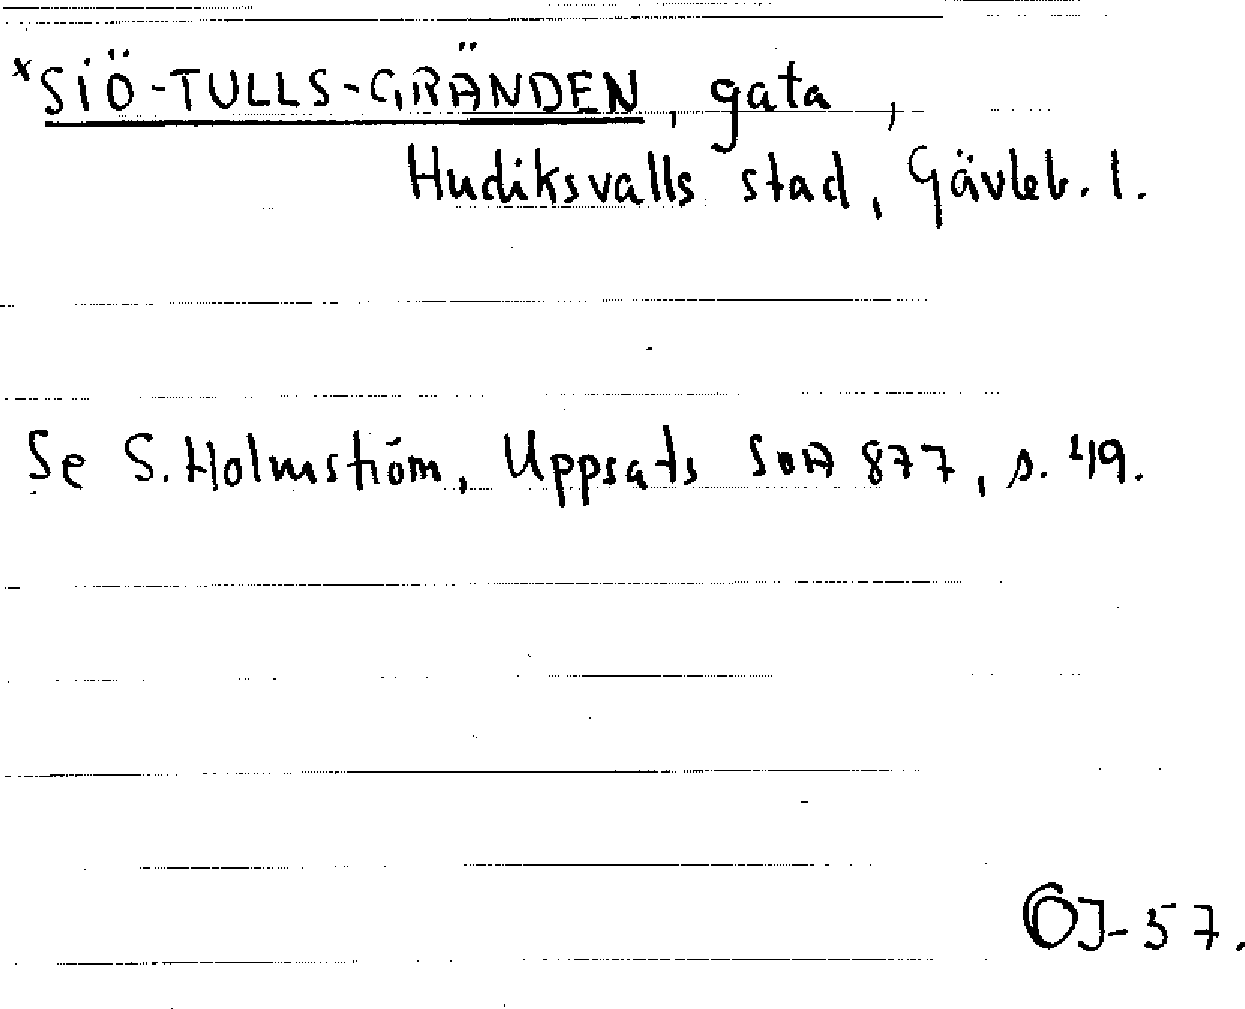 *SIÖ-TULLS-GRÄNDEN, gata,
Hudiksvalls stad, Gävleb. l.
Se S. Holmström, Uppsats SOA 877, s. 49.
OJ-57.